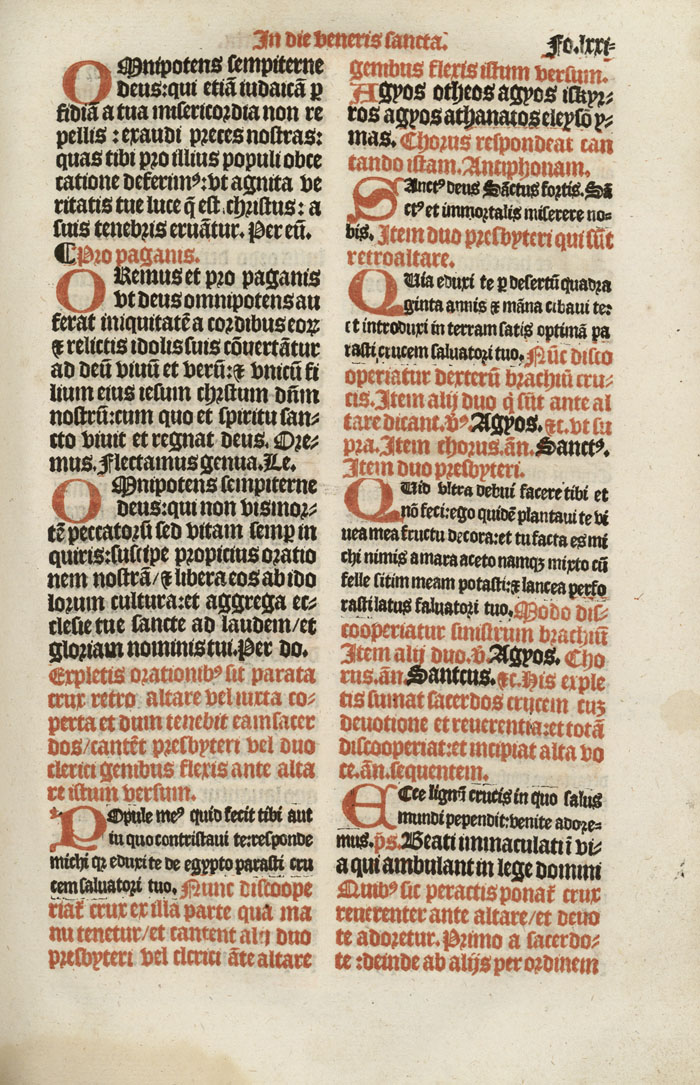 In die veneris sancta.
Fo.lxxi.
OMnipotens sempiterne
deus:qui etiā iudaicā ꝑ
fidiā a tua misericordia non re
pellis : exaudi preces nostras:
quas tibi pro illius populi obce
catione deferimꝰ:vt agnita ve
ritatis tue luce q̄ est christus: a
suis tenebris eruātur. Per eū.
¶Pro paganis.
ORemus et pro paganis
vt deus omnipotens au
ferat iniquitatē a cordibus eoꝝ
⁊ relictis idolis suis cōuertātur
ad deū viuū et verū:⁊ vnicū fi
lium eius iesum christum dn̄m
nostrū:cum quo et spiritu san-
cto viuit et regnat deus. Ore-
mus. Flectamus genua.Le.
OMnipotens sempiterne
deus:qui non vis mor-
tē peccatorū sed vitam semꝑ in
quiris:suscipe propicius oratio
nem nostrā/⁊ libera eos ab ido
lorum cultura:et aggrega ec-
clesie tue sancte ad laudem/et
gloriam nominis tui.Per do.
Expletis orationibꝰ sit parata
crux retro altare vel iuxta co-
perta et dum tenebit eam sacer
dos/cantēt presbyteri vel duo
clerici genibus flexis ante alta
re istum versum.
POpule meꝰ quid feci tibi aut
in quo contristaui te:responde
michi qꝛ eduxi te de egypto parasti cru
cem saluatori tuo. Nunc discoope
riat̄ crux ex illa parte qua ma
nu tenetur/et cantent alij duo
presbyteri vel clerici āte altare
genibus flexis istum versum.
Agyos otheos agyos iskyr-
ros agyos athanatos eleysō y-
mas. Chorus respondeat can
tando istam. Antiphonam.
SAnctꝰ deus Sāctus fortis. Sā
ctꝰ et immortalis miserere no-
bis. Item duo presbyteri qui sūt
retro altare.
QUia eduxi te ꝑ desertū quadra
ginta annis ⁊ māna cibaui te:
et introduxi in terram satis optimā pa
rasti crucem saluatori tuo. Nūc disco
operiatur dexterū brachiū cru-
cis. Item alij duo q̄ sūt ante al
tare dicant. v̄ꝰ. Agyos. ⁊c. vt su
pra. Item chorus. an̄. Sanctꝰ.
Item duo presbyteri.
QUid vltra debui facere tibi et
nō feci:ego quidē plantaui te vi
nea mea fructu decora:et tu facta es mi
chi nimis amara aceto namqꝫ mixto cū
felle sitim meam potasti:⁊ lancea perfo
rasti latus saluatori tuo. Modo dis-
cooperiatur sinistrum brachiū
Item alij duo. v̄. Agyos. Cho
rus. an̄ Sanctus. ⁊c. His exple
tis sumat sacerdos crucem cuꝫ
deuotione et reuerentia:et totā
discooperiat:et incipiat alta vo
ce. an̄. sequentem.
ECce lignū crucis in quo salus
mundi pependit:venite adore-
mus. ps. Beati immaculati ī vi-
a qui ambulant in lege domini
Quibꝰ sic peractis ponat̄ crux
reuerenter ante altare/et deuo
te adoretur. Primo a sacerdo-
te :deinde ab alijs per ordinem